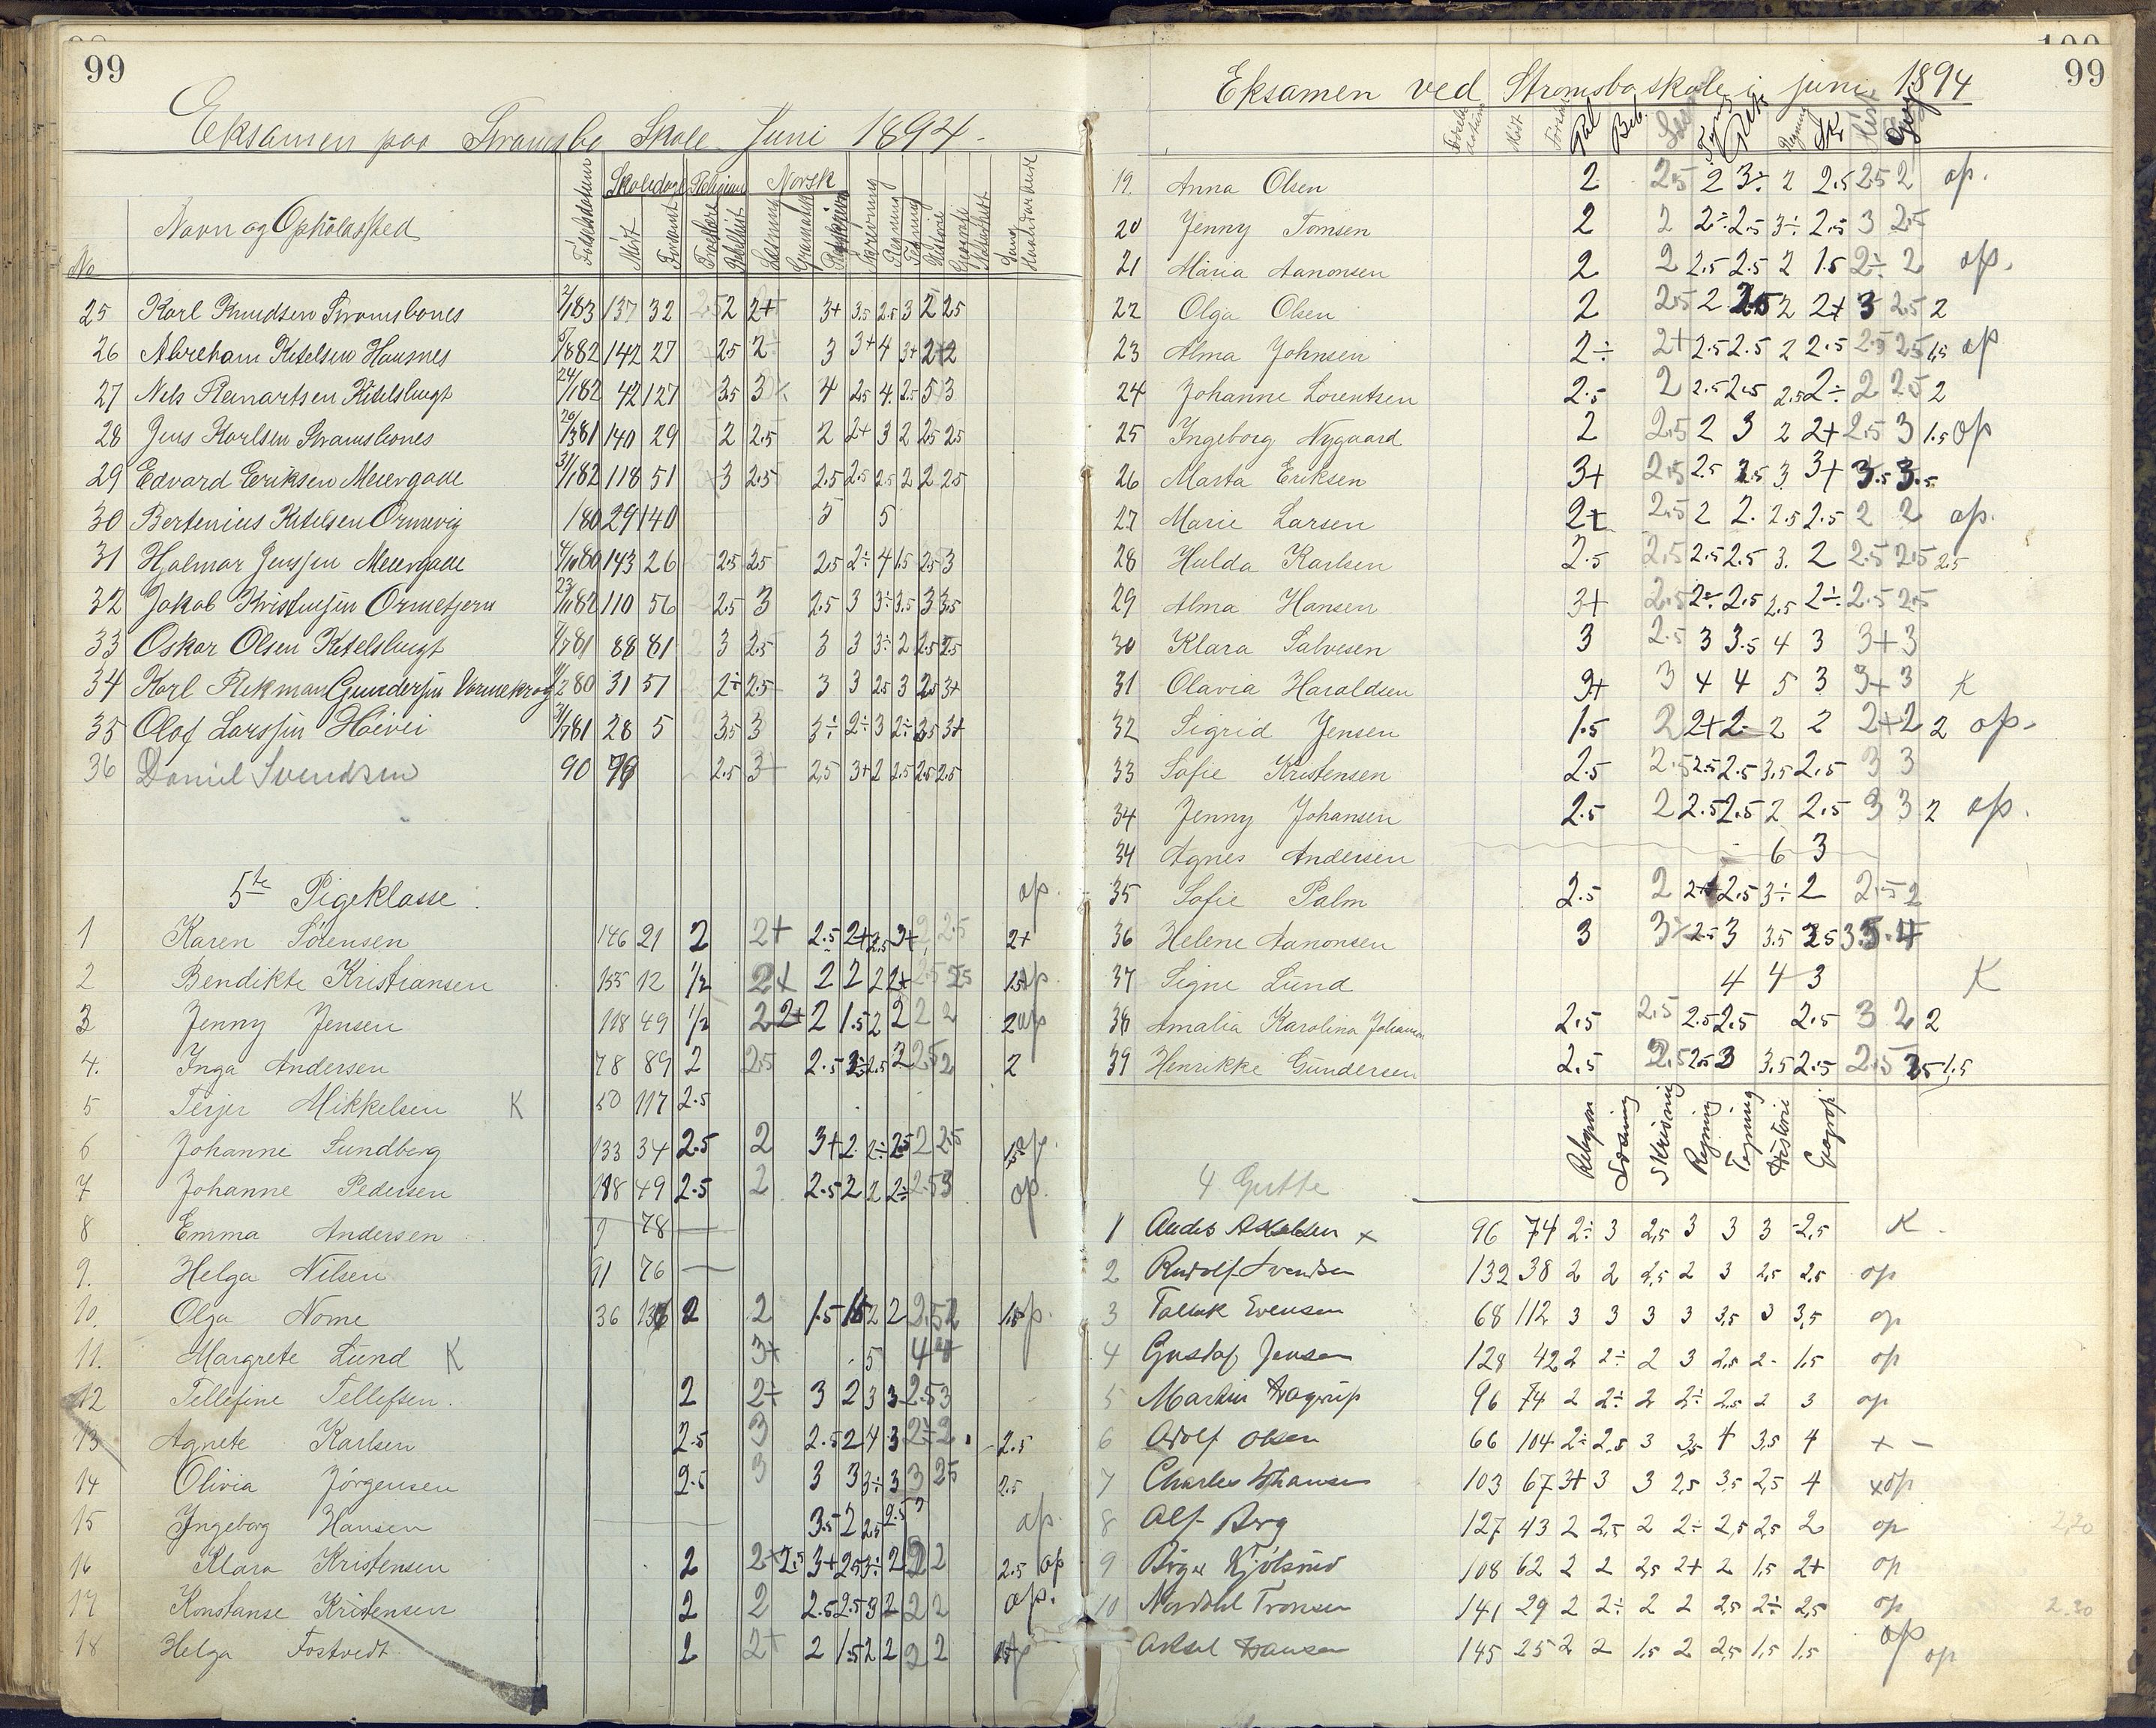 99
Eksamen paa Stromsbo Skole Juni 1894.
Skoledage Religion Norsk
No Navn og Opholdssted Fødselsdatum Mødt Forsømt Forklare Bibelhist Læsning Gramatik Retskrivn Skrivning Regning Tegning Historie Geografi Naturhist Sang Haandarbeide
25 Karl Knudsen Stromsbones 2/1 83 137 32 2.5 2 2+ 3+ 3.5 2.5 3 2 2.5
26 Abreham Ketelsen Hausnes 5/8 82 142 27 3+ 2.5 2÷ 3 3+ 4 3+ 2+ 2
27 Nels Reinartsen Ketelsbugt 24/1 82 42 127 3.5 3 4 2.5 4 2.5 5 3
28 Jens Karlsen Stromsbones 20/3 81 140 29 2 2.5 2 2+ 3 2 2.5 2.5
29 Edvard Eriksen Meiergade 31/1 82 118 51 3+ 3 2.5 2.5 2.5 2.5 2 2 2.5
30 Bertenius Ketelsen Ormevig 1 80 29 140 5 5
31 Hjalmar Jenssen Meiergade 4/10 80 143 26 2.5 2.5 2.5 2÷ 4 1.5 2.5 3
32 Jakob Kristensen Ormetjern 23/11 82 110 56 2.5 3 2.5 3 3÷ 3.5 3 3.5
33 Oskar Olsen Ketelsbugt 7/7 81 88 81 3 2.5 3 3 3÷ 2 2.5 2.5
34 Karl Rekman Gundersen 11/2 80 31 51 2÷ 2.5 3 3 2.5 3 2.5 3+
35 Olaf Larssen Høivei 31/7 81 28 5 3.5 3 3÷ 2÷ 3 2÷ 3.5 3+
36 Daniel Svendsen 90 79 2.5 3+ 2.5 3+ 2 2.5 2.5 2.5
5te Pigeklasse: op.
1 Karen Sørensen 146 21 2 2+ 2.5 2+ 2.5 3+ 2 2.5 2+
2 Bendikte Kristiansen 155 12 1/2 2+ 2 2 2 2+ 2.5 2.5 1.5 op.
3 Jenny Jensen 118 49 1/2 2 2+ 2 1.5 2 2 2 2 2 op
4. Inga Andersen 78 89 2 2.5 2.5 3÷ 2.5 2 2.5 2 2
5 Terjer Mikkelsen K 50 117 2.5
6 Johanne Sundberg 133 34 2.5 2 3+ 2 2÷ 2.5 2 2.5 1.5 op.
7 Johanne Pedersen 118 49 2.5 2 2.5 2 2 2÷ 2.5 3 op.
8 Emma Andersen 9 78 —
9. Helga Nilsen 91 76 —
10. Olga Nome 36 131 2 2 1.5 1.5 2 2 2.5 2 1.5 op.
11. Margrete Lund K 3+ 5 4 4
12 Tellefine Tellefsen. 2 2+ 3 2 3 3 2.5 3
13 Agnete Karlsen 2.5 3 2.5 2 4 3 2÷ 2 2.5
14 Olivia Jörgensen 2.5 3 3 3 3÷ 3 3 2.5 2.5
15 Ingeborg Hansen 3.5 2 2.5 2.5 op.
16 Klara Kristensen 2 2+ 2.5 3+ 2.5 3÷ 2 2 2 2.5 op
17 Konstanse Kristensen 2 2 2.5 2.5 3 2 2 2 op.
18 Helga Fostvedt 2 2+ 2 1.5 2 2 2 2 op
99
Eksamen ved Stromsbo skole i juni 1894
19. Anna Olsen 2 2.5 2 3÷ 2 2.5 2.5 2 op.
20 Jenny Tomsen 2 2 2÷ 2.5 3÷ 2.5 3 2.5
21 Maria Aanonsen 2 2 2.5 2.5 2 1.5 2÷ 2 op.
22 Olga Olsen 2 2.5 2 2.5 2 2+ 3 2.5 2
23 Alma Johnsen 2÷ 2+ 2.5 2.5 2 2.5 2.5 2.5 1.5 op
24 Johanne Lorentsen 2.5 2 2.5 2.5 2.5 2÷ 2 2.5 2
25 Ingeborg Nygaard 2 2.5 2 3 2 2+ 2.5 3 1.5 op
26 Marta Eriksen 3+ 2.5 2.5 2.5 3 3+ 3.5 3.5
27 Marie Larsen 2+ 2.5 2 2. 2.5 2.5 2 2 op.
28 Hulda Karlsen 2.5 2.5 2.5 2.5 3. 2 2.5 2.5 2.5
29 Alma Hansen 3+ 2.5 2÷ 2.5 2.5 2÷ 2.5 2.5
30 Klara Salvesen 3 2.5 3 3.5 4 3 3+ 3
31 Olavia Haraldsen 3+ 3 4 4 5 3 3+ 3 K
32 Sigrid Jensen 1.5 2 2+ 2 2 2 2+ 2 2 op.
33 Sofie Kristensen 2.5 2.5 2.5 2.5 3.5 2.5 3 3
34 Jenny Johansen 2.5 2 2.5 2.5 2 2.5 3 3 2 op.
34 Agnes Andersen 6 3
35 Sofie Palm 2.5 2 2+ 2.5 3÷ 2 2.5 2
36 Helene Aanonsen 3 3÷ 2.5 3 3.5 2.5 3.5 4
37 Signe Lund 4 4 3 K
38 Amalia Karolina Johansen 2.5 2.5 2.5 2.5 2.5 3 2 2
39 Henrikke Gundersen 2.5 2.5 2.5 3 3.5 2.5 2.5 2.5 1.5
4 Gutte Religion Læsning Skrivning Regning Tegning Historie Geografi
1 Anders Aslaksen x 96 74 2÷ 3 2,5 3 3 3 2,5 K.
2 Rudolf Svendsen 132 38 2 2 2,5 2 3 2,5 2,5 op
3 Tallak Evensen 68 112 3 3 3 3 3,5 3 3,5 op
4 Gustaf Jensen 128 42 2 2÷ 2 3 2,5 2- 1,5 op
5 Martin 96 74 2 2÷ 2 2÷ 2,5 2 3 op
6 Adolf Olsen 66 104 2÷ 2,5 3 3,5 4 3,5 4 x —
7 Charles Johansen 103 67 3+ 3 3 2,5 3,5 2,5 4 x op
8 Alf Berg 127 43 2 2,5 2 2÷ 2,5 2,5 2 op 2,20
9 Birger 108 62 2 2 2,5 2+ 2 1,5 2+ op
10 Nordahl Tronsen 141 29 2 2÷ 2 2 2,5 2÷ 2,5 op 2.30
Aksel Hansen 145 25 2 2 1,5 2 2,5 1,5 1,5 op op